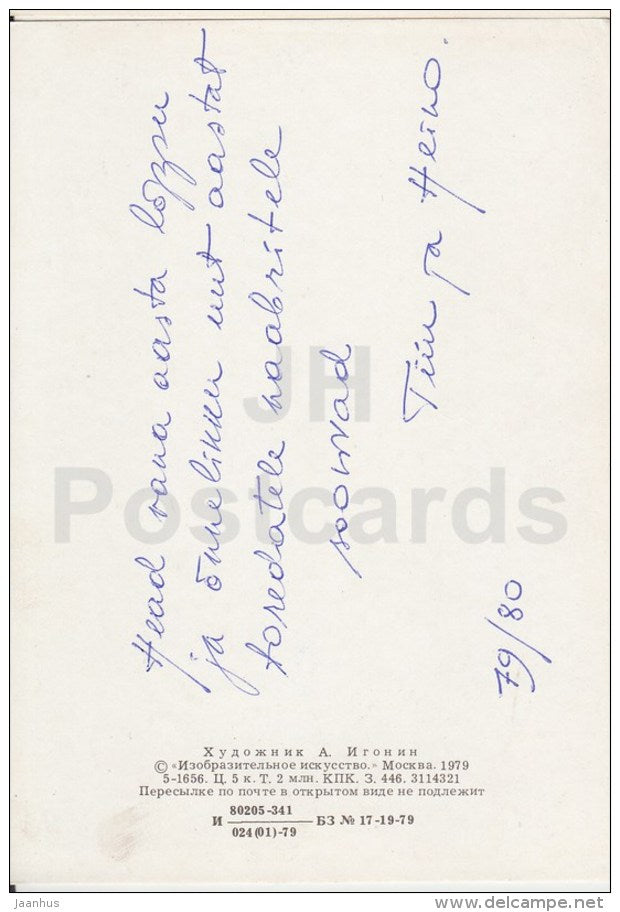 Head vana aasta lõppu
ja õnnelikku uut aastat
toredatele naabritele
soovivad
Tiiu ja Heino.
79/80
JH
Postcards
Художник А. Игонин
© «Изобразительное искусство.» Москва. 1979
5-1656. Ц. 5 к. Т. 2 млн. КПК. З. 446. 3114321
Пересылке по почте в открытом виде не подлежит
И 80205-341 БЗ № 17-19-79
024(01)-79
Jaanhus
www.delcampe.net